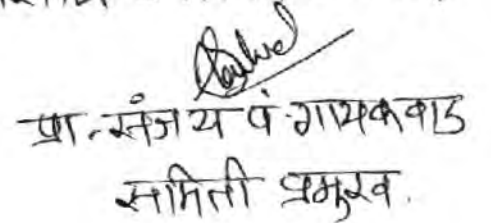 प्रा. संजय पं. गायकवाड
समिती प्रमुख.